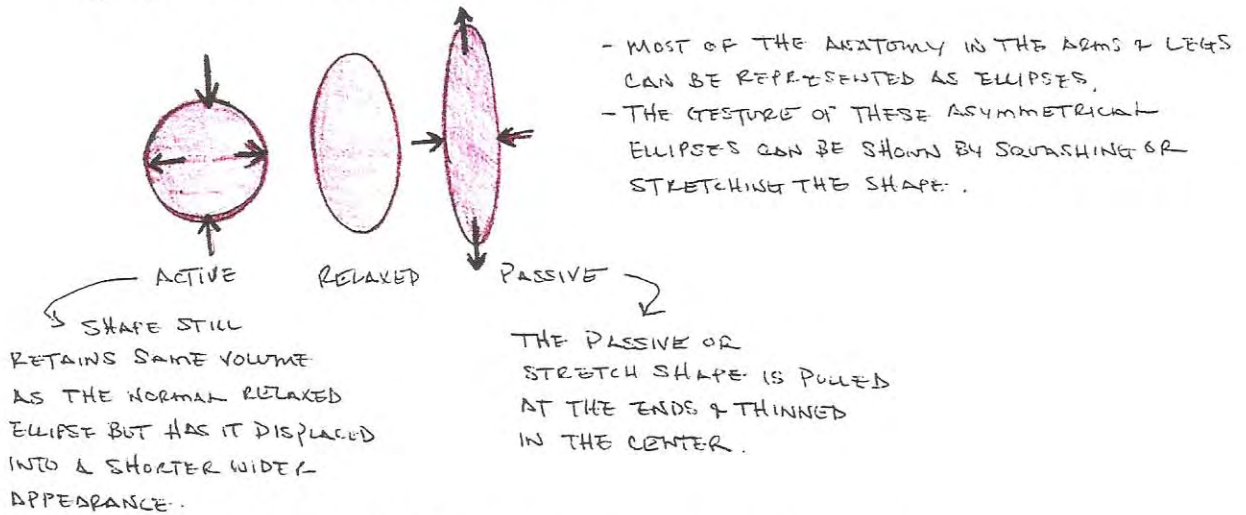 - MOST OF THE ANATOMY IN THE ARMS & LEGS
CAN BE REPRESENTED AS ELLIPSES.
- THE GESTURE OF THESE ASYMMETRICAL
ELLIPSES CAN BE SHOWN BY SQUASHING OR
STRETCHING THE SHAPE.
ACTIVE
RELAXED
PASSIVE
SHAPE STILL
RETAINS SAME VOLUME
AS THE NORMAL RELAXED
ELLIPSE BUT HAS IT DISPLACED
INTO A SHORTER WIDER
APPEARANCE.
THE PASSIVE OR
STRETCH SHAPE IS PULLED
AT THE ENDS & THINNED
IN THE CENTER.